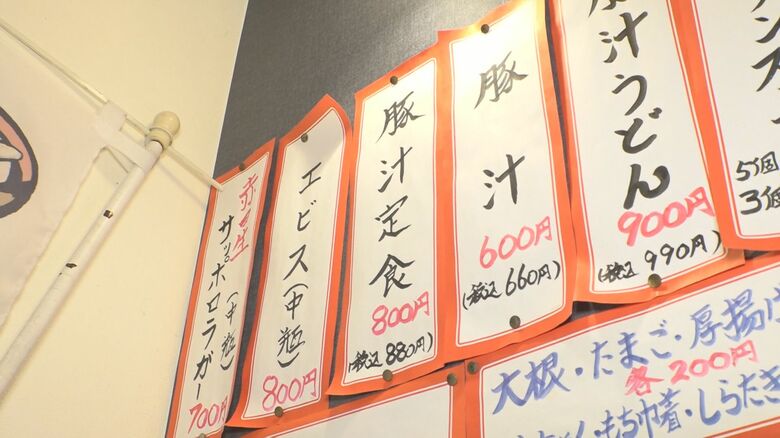 赤星
サッポロラガー(中瓶)
700円
エビス(中瓶)
800円
豚汁定食
800円
(税込 880円)
豚汁
600円
(税込 660円)
豚汁うどん
900円
(税込 990円)
5個
3個
大根・たまご・厚揚げ
各200円
もち巾着・しらたき